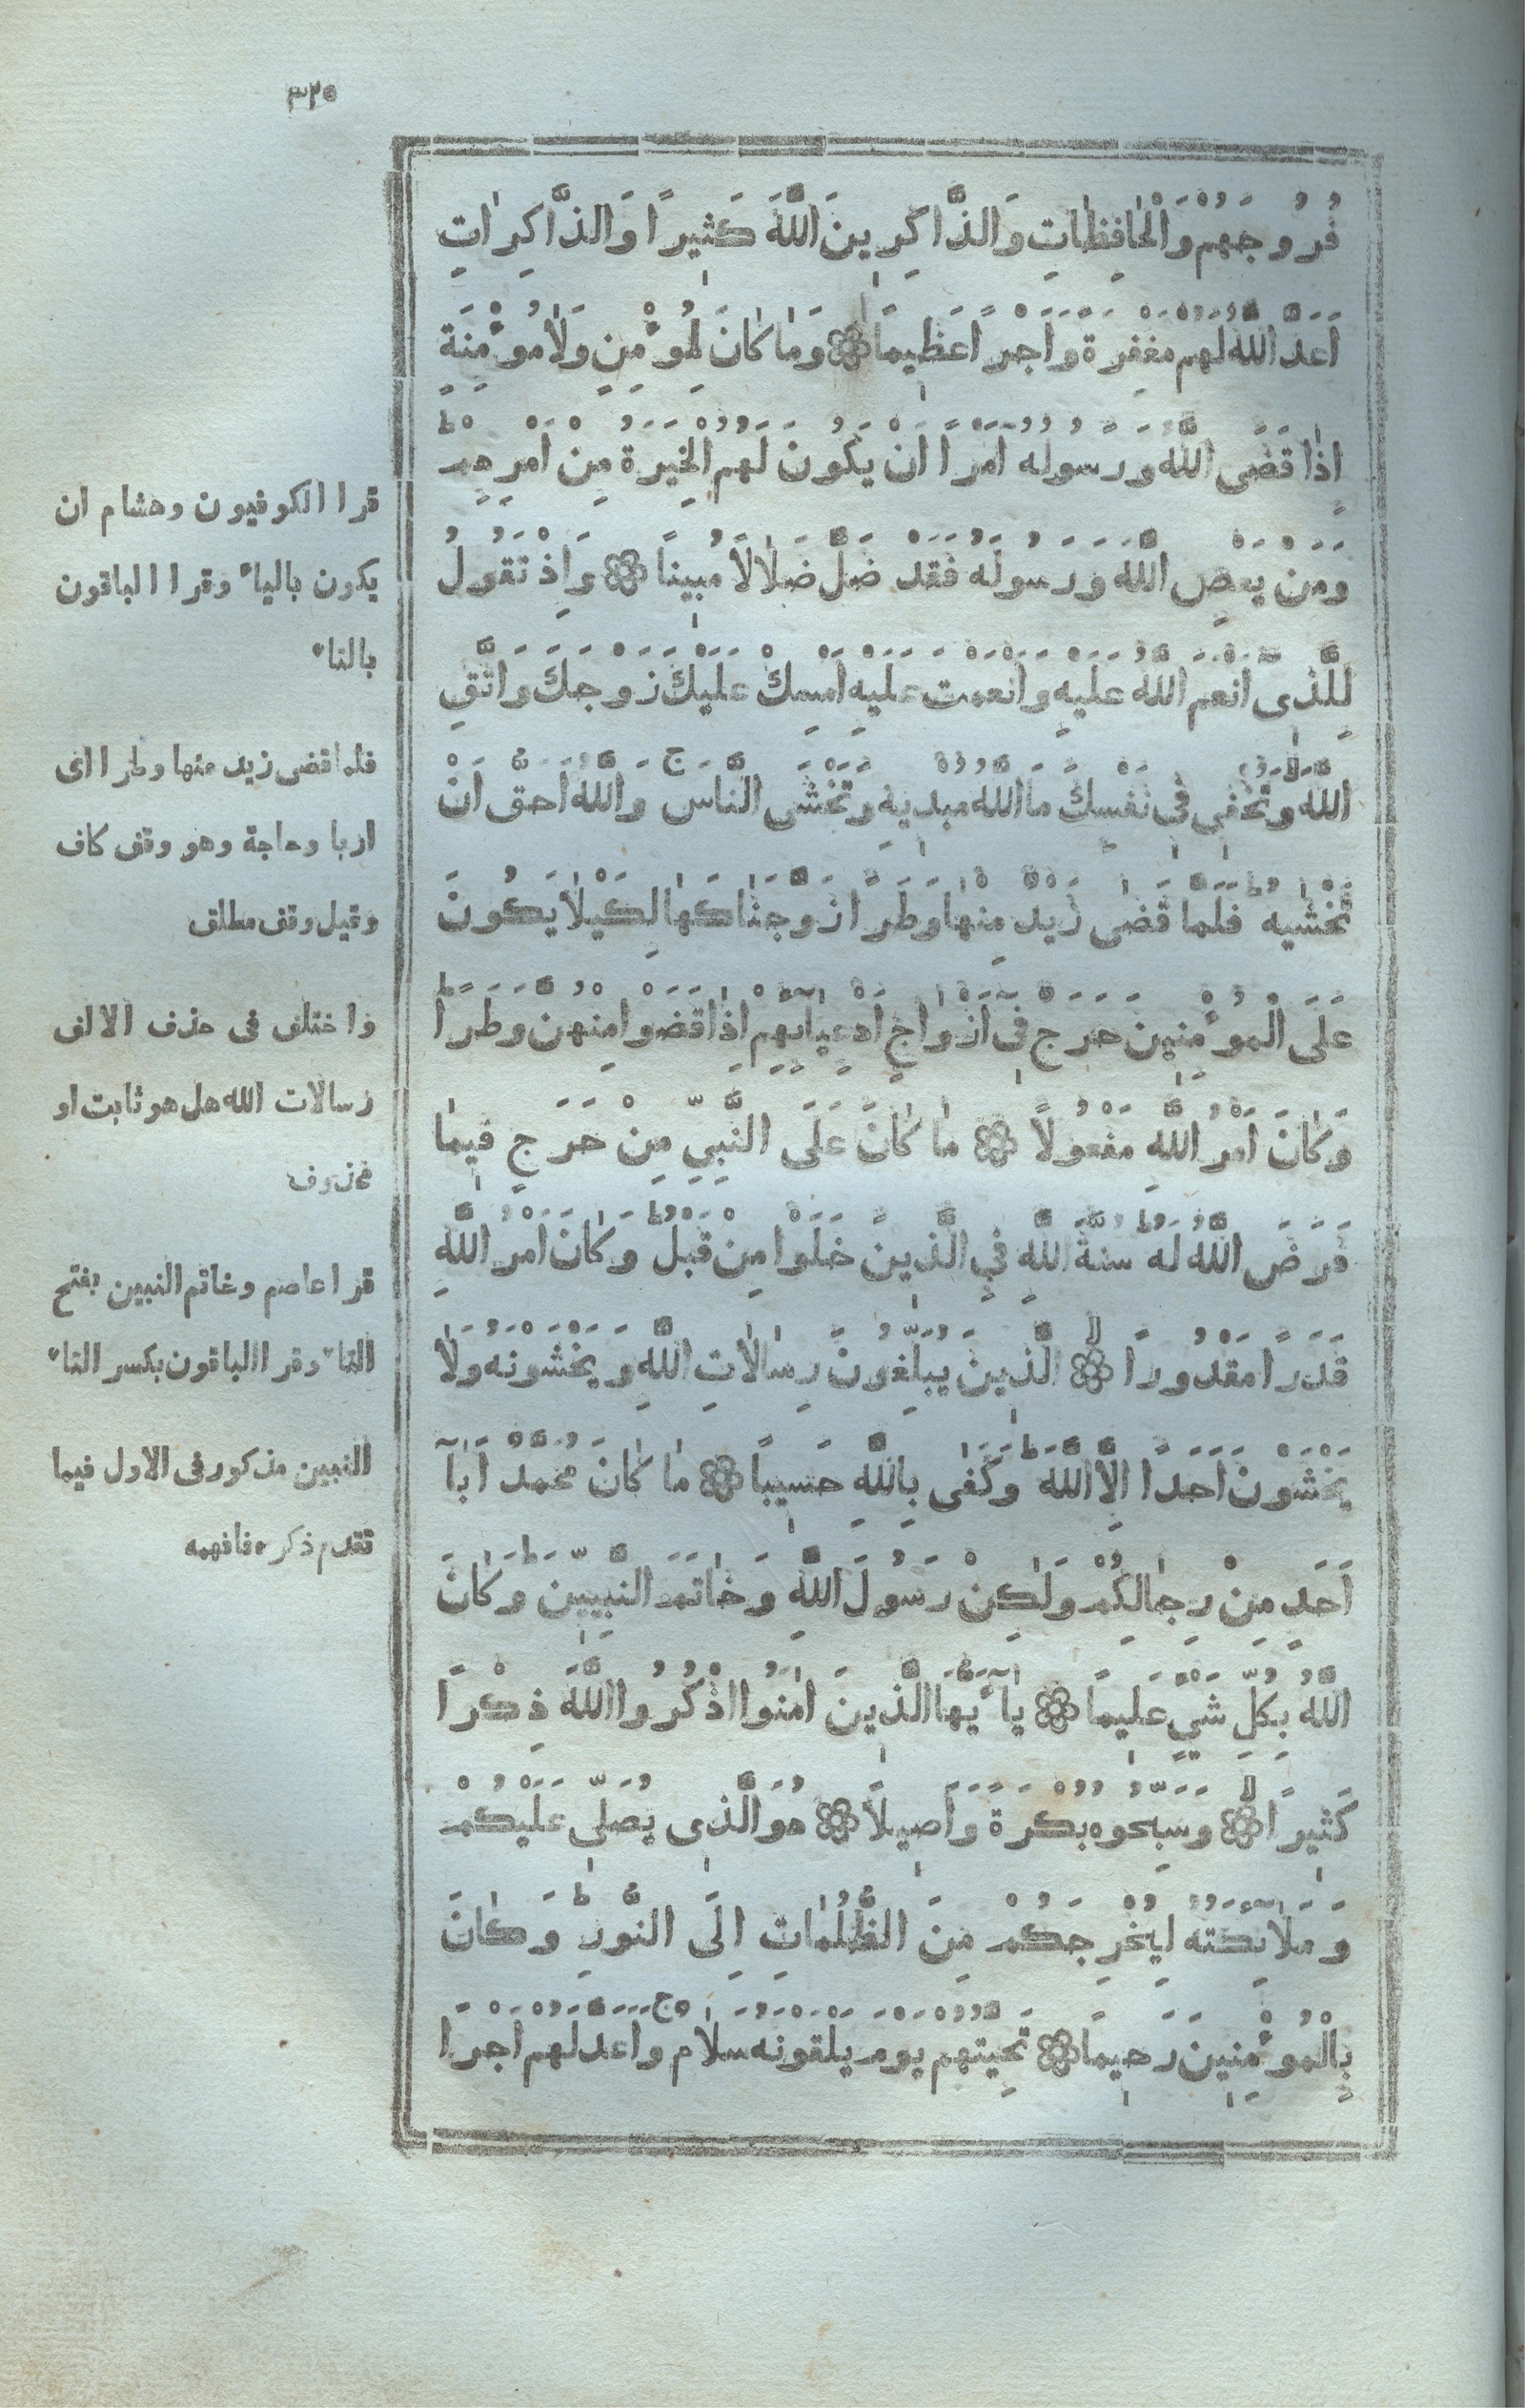 ٣٢٥
فُرُوجَهُمْ وَالْحَافِظَاتِ وَالذَّاكِرِينَ اللَّهَ كَثِيرًا وَالذَّاكِرَاتِ
اَعَدَّ اللَّهُ لَهُمْ مَغْفِرَةً وَاَجْرًا عَظِيمًا ۝ وَمَا كَانَ لِمُؤْمِنٍ وَلَا مُؤْمِنَةٍ
اِذَا قَضَى اللَّهُ وَرَسُولُهُٓ اَمْرًا اَنْ يَكُونَ لَهُمُ الْخِيَرَةُ مِنْ اَمْرِهِمْ ط
وَمَنْ يَعْصِ اللَّهَ وَرَسُولَهُ فَقَدْ ضَلَّ ضَلَالًا مُبِينًا ۝ وَاِذْ تَقُولُ
لِلَّذِٓى اَنْعَمَ اللَّهُ عَلَيْهِ وَاَنْعَمْتَ عَلَيْهِ اَمْسِكْ عَلَيْكَ زَوْجَكَ وَاتَّقِ
اللَّهَ وَتُخْفِى فِى نَفْسِكَ مَا اللَّهُ مُبْدِيهِ وَتَخْشَى النَّاسَ ج وَاللَّهُ اَحَقُّ اَنْ
تَخْشٰيهُ ط فَلَمَّا قَضٰى زَيْدٌ مِنْهَا وَطَرًا زَوَّجْنَاكَهَا لِكَيْلَا يَكُونَ
عَلَى الْمُؤْمِنِينَ حَرَجٌ فِٓى اَزْوَاجِ اَدْعِيَآئِهِمْ اِذَا قَضَوْا مِنْهُنَّ وَطَرًا ط
وَكَانَ اَمْرُ اللَّهِ مَفْعُولًا ۝ مَا كَانَ عَلَى النَّبِيِّ مِنْ حَرَجٍ فِيمَا
فَرَضَ اللَّهُ لَهُ ط سُنَّةَ اللَّهِ فِي الَّذِينَ خَلَوْا مِنْ قَبْلُ ط وَكَانَ اَمْرُ اللَّهِ
قَدَرًا مَقْدُورًا ۝ لا الَّذِينَ يُبَلِّغُونَ رِسَالَاتِ اللَّهِ وَيَخْشَوْنَهُ وَلَا
يَخْشَوْنَ اَحَدًا اِلَّا اللَّهَ ط وَكَفٰى بِاللَّهِ حَسِيبًا ۝ مَا كَانَ مُحَمَّدٌ اَبَآ
اَحَدٍ مِنْ رِجَالِكُمْ وَلٰكِنْ رَسُولَ اللَّهِ وَخَاتَمَ النَّبِيِّينَ ط وَكَانَ
اللَّهُ بِكُلِّ شَيْءٍ عَلِيمًا ۝ يَآ أَيُّهَا الَّذِينَ اٰمَنُوا اذْكُرُوا اللَّهَ ذِكْرًا
كَثِيرًا ۝ لا وَسَبِّحُوهُ بُكْرَةً وَاَصِيلًا ۝ هُوَ الَّذِى يُصَلِّى عَلَيْكُمْ
وَمَلَآئِكَتُهُ لِيُخْرِجَكُمْ مِنَ الظُّلُمَاتِ اِلَى النُّورِ ط وَكَانَ
بِالْمُؤْمِنِينَ رَحِيمًا ۝ تَحِيَّتُهُمْ يَوْمَ يَلْقَوْنَهُ سَلَامٌ ج وَاَعَدَّ لَهُمْ اَجْرًا
قرا الكوفيون وهشام ان
يكون بالياء وقرا الباقون
بالتاء
فلما قضى زيد منها وطرا اى
اربا وحاجة وهو وقف كاف
وقيل وقف مطلق
واختلف فى حذف الالف
رسالات الله هل هو ثابت او
محذوف
قرا عاصم وخاتم النبين بفتح
التاء وقرا الباقون بكسر التاء
النبيين مذكور فى الاول فيما
تقدم ذكره فافهمه